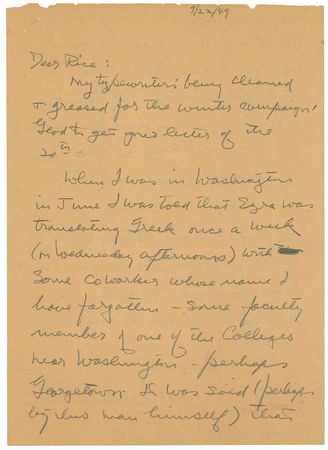 9/22/49
Dear Rice:
My typewriter's being cleaned
& greased for the winter campaign!
Glad to get your letter of the
20th -
When I was in Washington
in June I was told that Ezra was
translating Greek once a week
(on Wednesday afternoons) with
some coworker whose name I
have forgotten - some faculty
member of one of the Colleges
near Washington - perhaps
Georgetown. It was said (perhaps
by this man himself) that